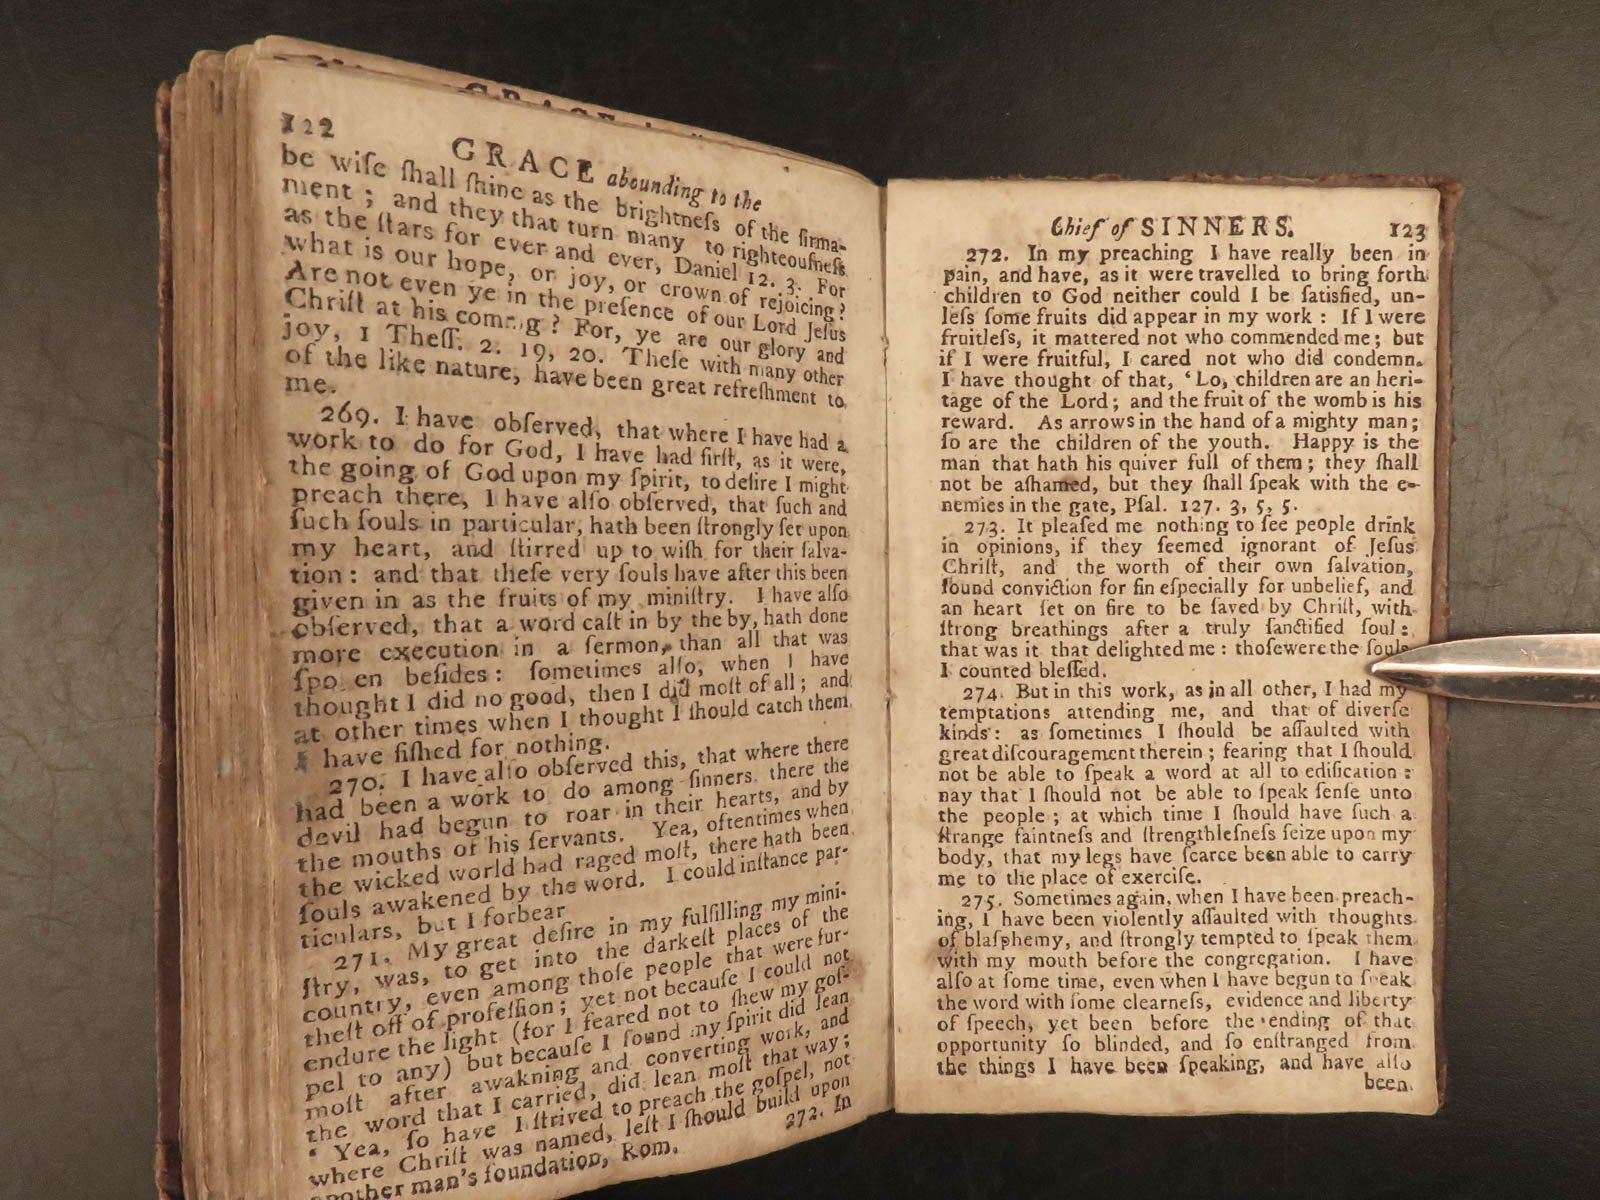 122
GRACE abounding to the
be wiſe ſhall ſhine as the brightneſs of the firma-
ment ; and they that turn many to righteouſneſs
as the ſtars for ever and ever, Daniel 12. 3. For
what is our hope, or joy, or crown of rejoicing ?
Are not even ye in the preſence of our Lord Jeſus
Chriſt at his com g ? For, ye are our glory and
joy, 1 Theſſ. 2. 19, 20. Theſe with many other
of the like nature, have been great refreſhment to
me.
269. I have obſerved, that where I have had a
work to do for God, I have had firſt, as it were,
the going of God upon my ſpirit, to deſire I might
preach there, I have alſo obſerved, that ſuch and
ſuch ſouls in particular, hath been ſtrongly ſet upon
my heart, and ſtirred up to wiſh for their ſalva-
tion : and that theſe very ſouls have after this been
given in as the fruits of my miniſtry. I have alſo
obſerved, that a word caſt in by the by, hath done
more execution in a ſermon, than all that was
ſpo en beſides : ſometimes alſo, when I have
thought I did no good, then I did moſt of all ; and
at other times when I thought I ſhould catch them
I have fiſhed for nothing.
270. I have alſo obſerved this, that where there
had been a work to do among ſinners, there the
devil had begun to roar in their hearts, and by
the mouths of his ſervants. Yea, oftentimes when
the wicked world had raged moſt, there hath been
ſouls awakened by the word. I could inſtance par-
ticulars, but I forbear
271. My great deſire in my fulfilling my mini-
ſtry, was, to get into the darkeſt places of the
country, even among thoſe people that were fur-
theſt off of profeſſion ; yet not becauſe I could not
endure the light (for I feared not to ſhew my goſ-
pel to any) but becauſe I found my ſpirit did lean
moſt after awakning and converting work, and
the word that I carried, did lean moſt that way ;
‘ Yea, ſo have I ſtrived to preach the goſpel, not
where Chriſt was named, leſt I ſhould build upon
another man's foundation, Rom.
272. In
Chief of SINNERS. 123
272. In my preaching I have really been in
pain, and have, as it were travelled to bring forth
children to God neither could I be ſatisfied, un-
leſs ſome fruits did appear in my work : If I were
fruitleſs, it mattered not who commended me ; but
if I were fruitful, I cared not who did condemn.
I have thought of that, ‘ Lo, children are an heri-
tage of the Lord ; and the fruit of the womb is his
reward. As arrows in the hand of a mighty man ;
ſo are the children of the youth. Happy is the
man that hath his quiver full of them ; they ſhall
not be aſhamed, but they ſhall ſpeak with the e-
nemies in the gate, Pſal. 127. 3, 5, 5.
273. It pleaſed me nothing to ſee people drink
in opinions, if they ſeemed ignorant of Jeſus
Chriſt, and the worth of their own ſalvation,
ſound conviction for ſin eſpecially for unbelief, and
an heart ſet on fire to be ſaved by Chriſt, with
ſtrong breathings after a truly ſanctified ſoul :
that was it that delighted me : thoſe were the ſouls
I counted bleſſed.
274. But in this work, as in all other, I had my
temptations attending me, and that of diverſe
kinds : as ſometimes I ſhould be aſſaulted with
great diſcouragement therein ; fearing that I ſhould
not be able to ſpeak a word at all to edification :
nay that I ſhould not be able to ſpeak ſenſe unto
the people ; at which time I ſhould have ſuch a
ſtrange faintneſs and ſtrengthleſneſs ſeize upon my
body, that my legs have ſcarce been able to carry
me to the place of exerciſe.
275. Sometimes again, when I have been preach-
ing, I have been violently aſſaulted with thoughts
of blaſphemy, and ſtrongly tempted to ſpeak them
with my mouth before the congregation. I have
alſo at ſome time, even when I have begun to ſpeak
the word with ſome clearneſs, evidence and liberty
of ſpeech, yet been before the ending of that
opportunity ſo blinded, and ſo enſtranged from
the things I have been ſpeaking, and have alſo
been